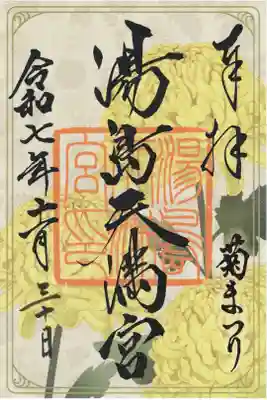 奉拝
菊まつり
湯島天満宮
湯島
宮印
令和七年十一月三十日